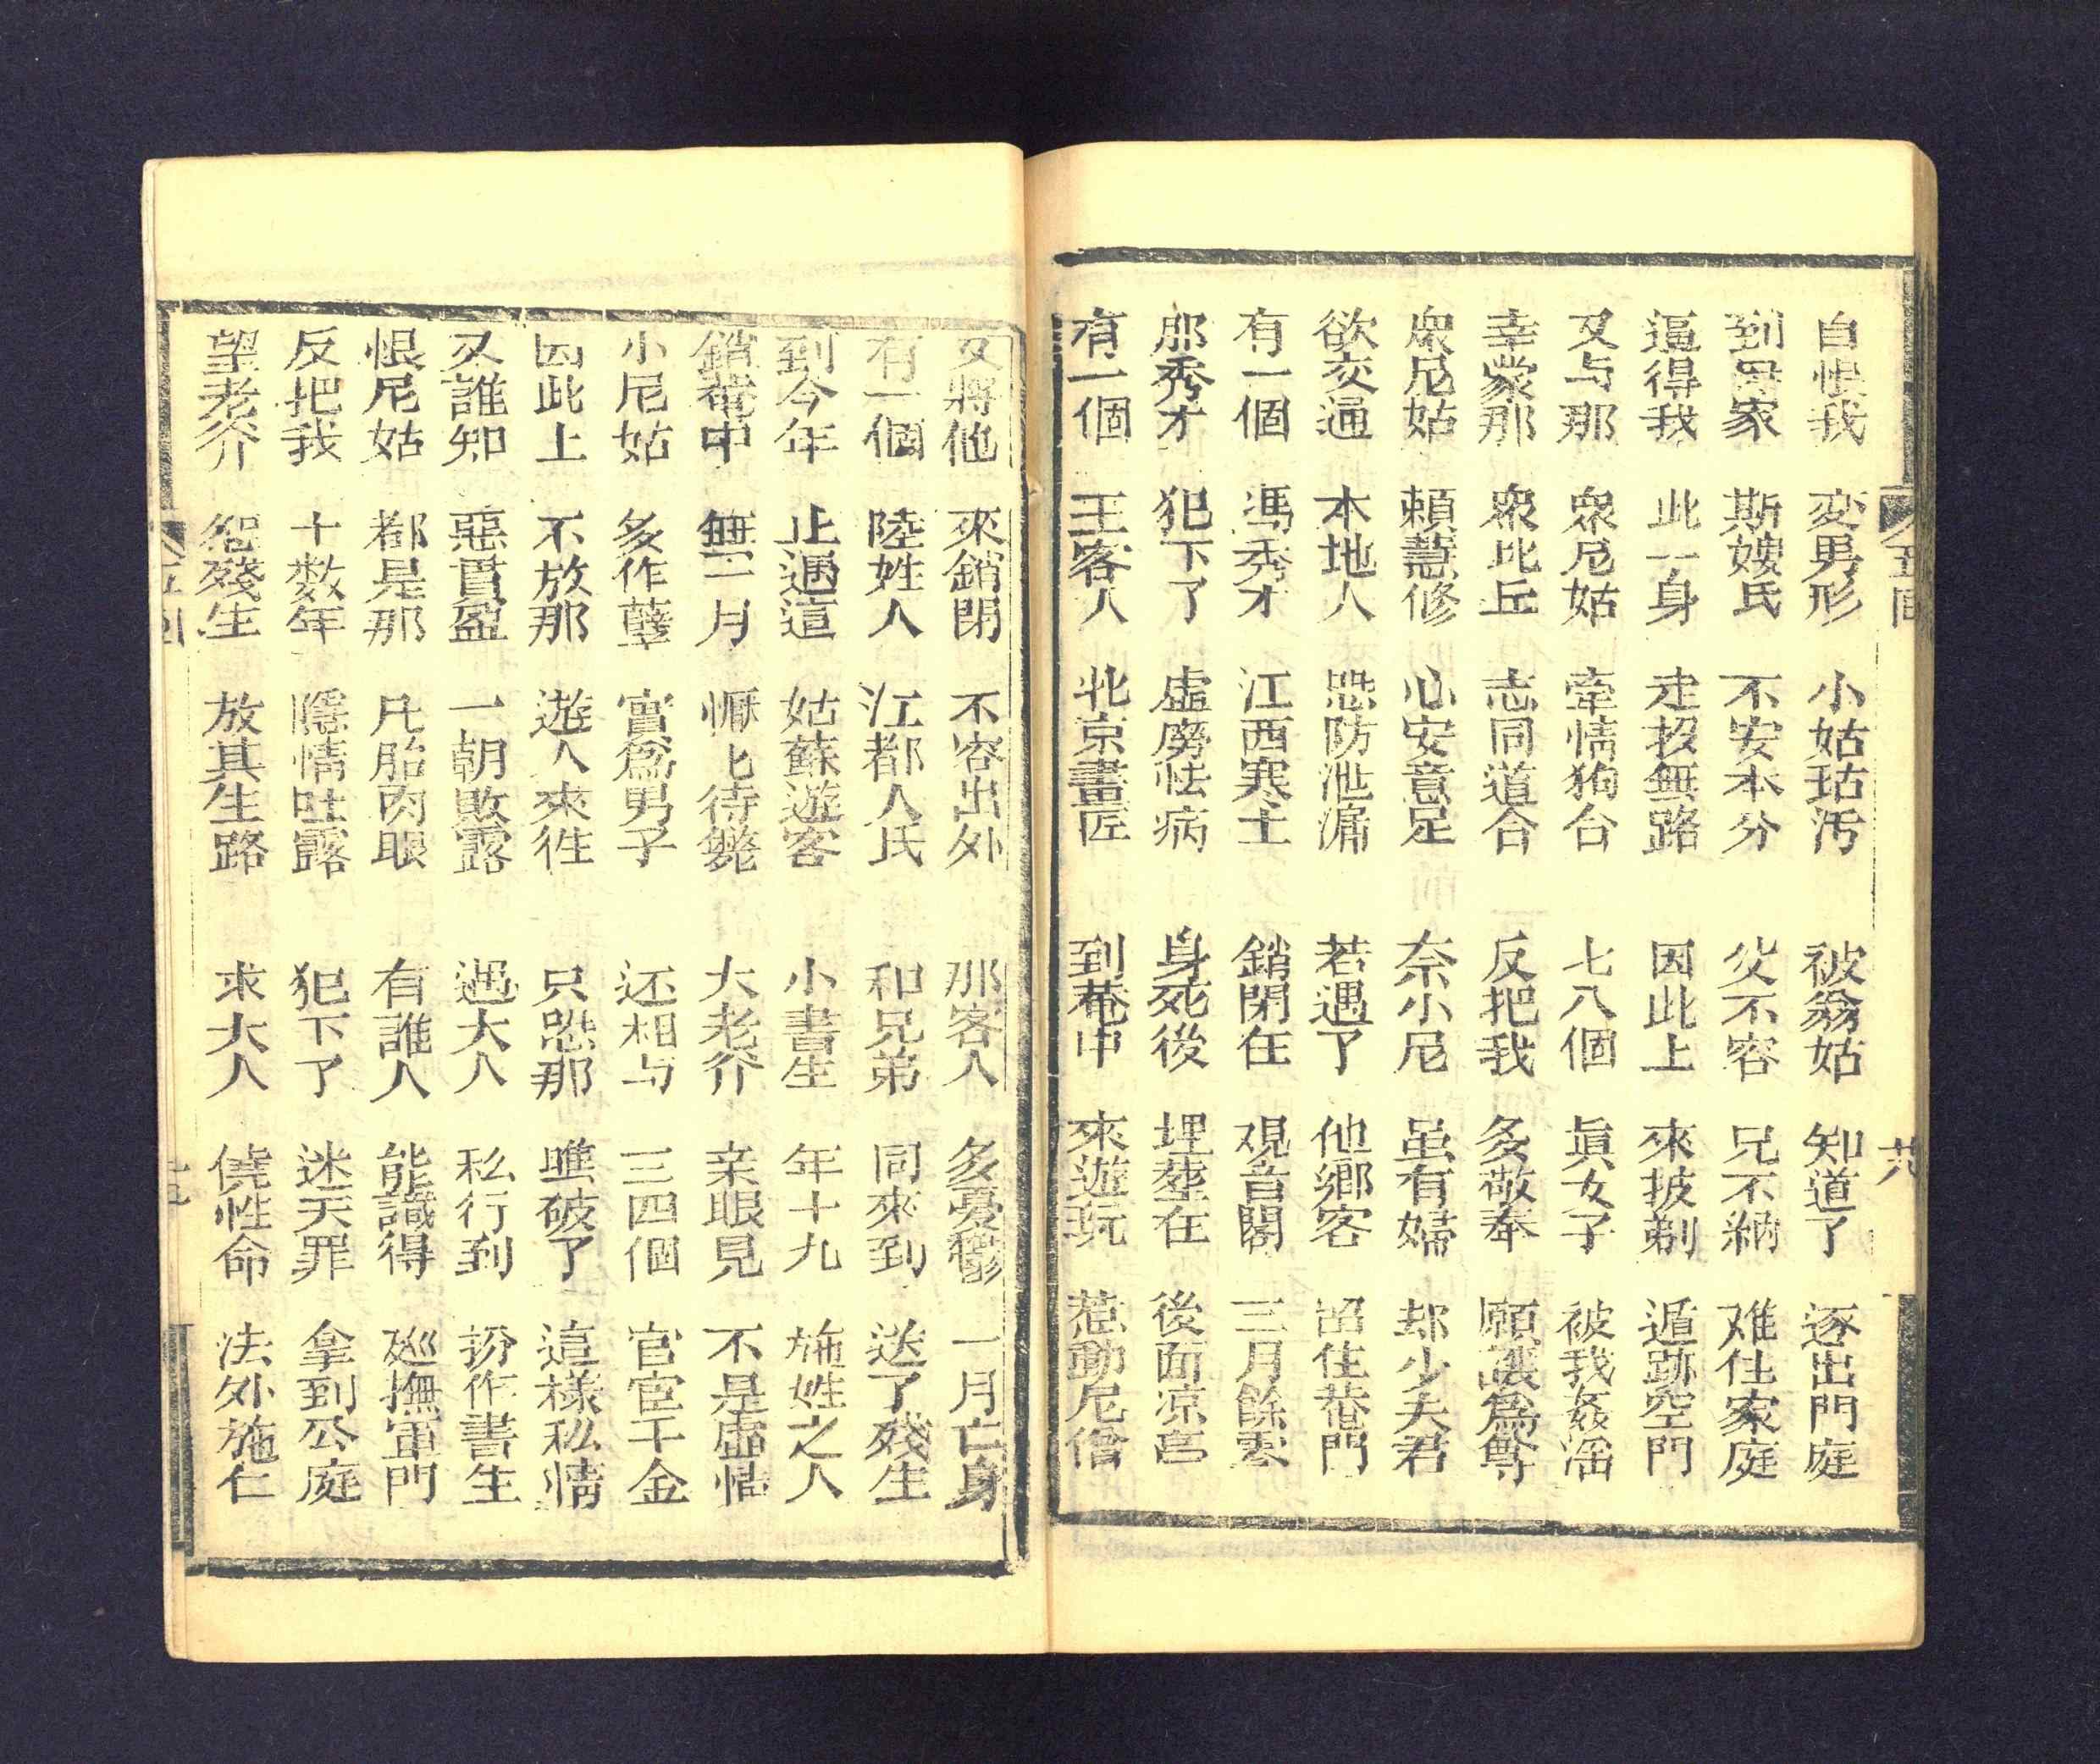 自恨我 变男形 小姑玷污 被翁姑 知道了 逐出門庭
到母家 斯嫂氏 不安本分 父不容 兄不納 难住家庭
逼得我 此一身 走投無路 因此上 來披剃 遁跡空門
又与那 衆尼姑 牽情狥合 七八個 眞女子 被我姦淫
幸蒙那 衆比丘 志同道合 反把我 多敬奉 願讓爲尊
衆尼姑 頼慧修 心安意足 奈小尼 虽有婦 却少夫君
欲交通 本地人 恐防泄漏 若遇了 他鄉客 留住菴門
有一個 馮秀才 江西寒士 銷閉在 观音閣 三月餘零
那秀才 犯下了 虛癆怯病 身死後 埋塟在 後面凉亭
有一個 王客人 北京畫匠 到菴中 來遊玩 惹動尼僧
又將他 來銷閉 不容出外 那客人 多憂鬱 一月亡身
有一個 陸姓人 江都人氏 和兄弟 同來到 送了殘生
到今年 止遇這 姑蘇遊客 小書生 年十九 施姓之人
銷菴中 無一月 懨匕待斃 大老介 亲眼見 不是虛情
小尼姑 多作孽 實爲男子 还相与 三四個 官宦千金
因此上 不放那 遊人來徃 只恐那 瞧破了 這様私情
又誰知 惡貫盈 一朝敗露 遇大人 私行到 扮作書生
恨尼姑 都是那 凡胎肉眼 有誰人 能識得 廵撫軍門
反把我 十数年 隱情吐露 犯下了 迷天罪 拿到公庭
望老介 恕殘生 放其生路 求大人 僥性命 法外施仁
五回
廿八